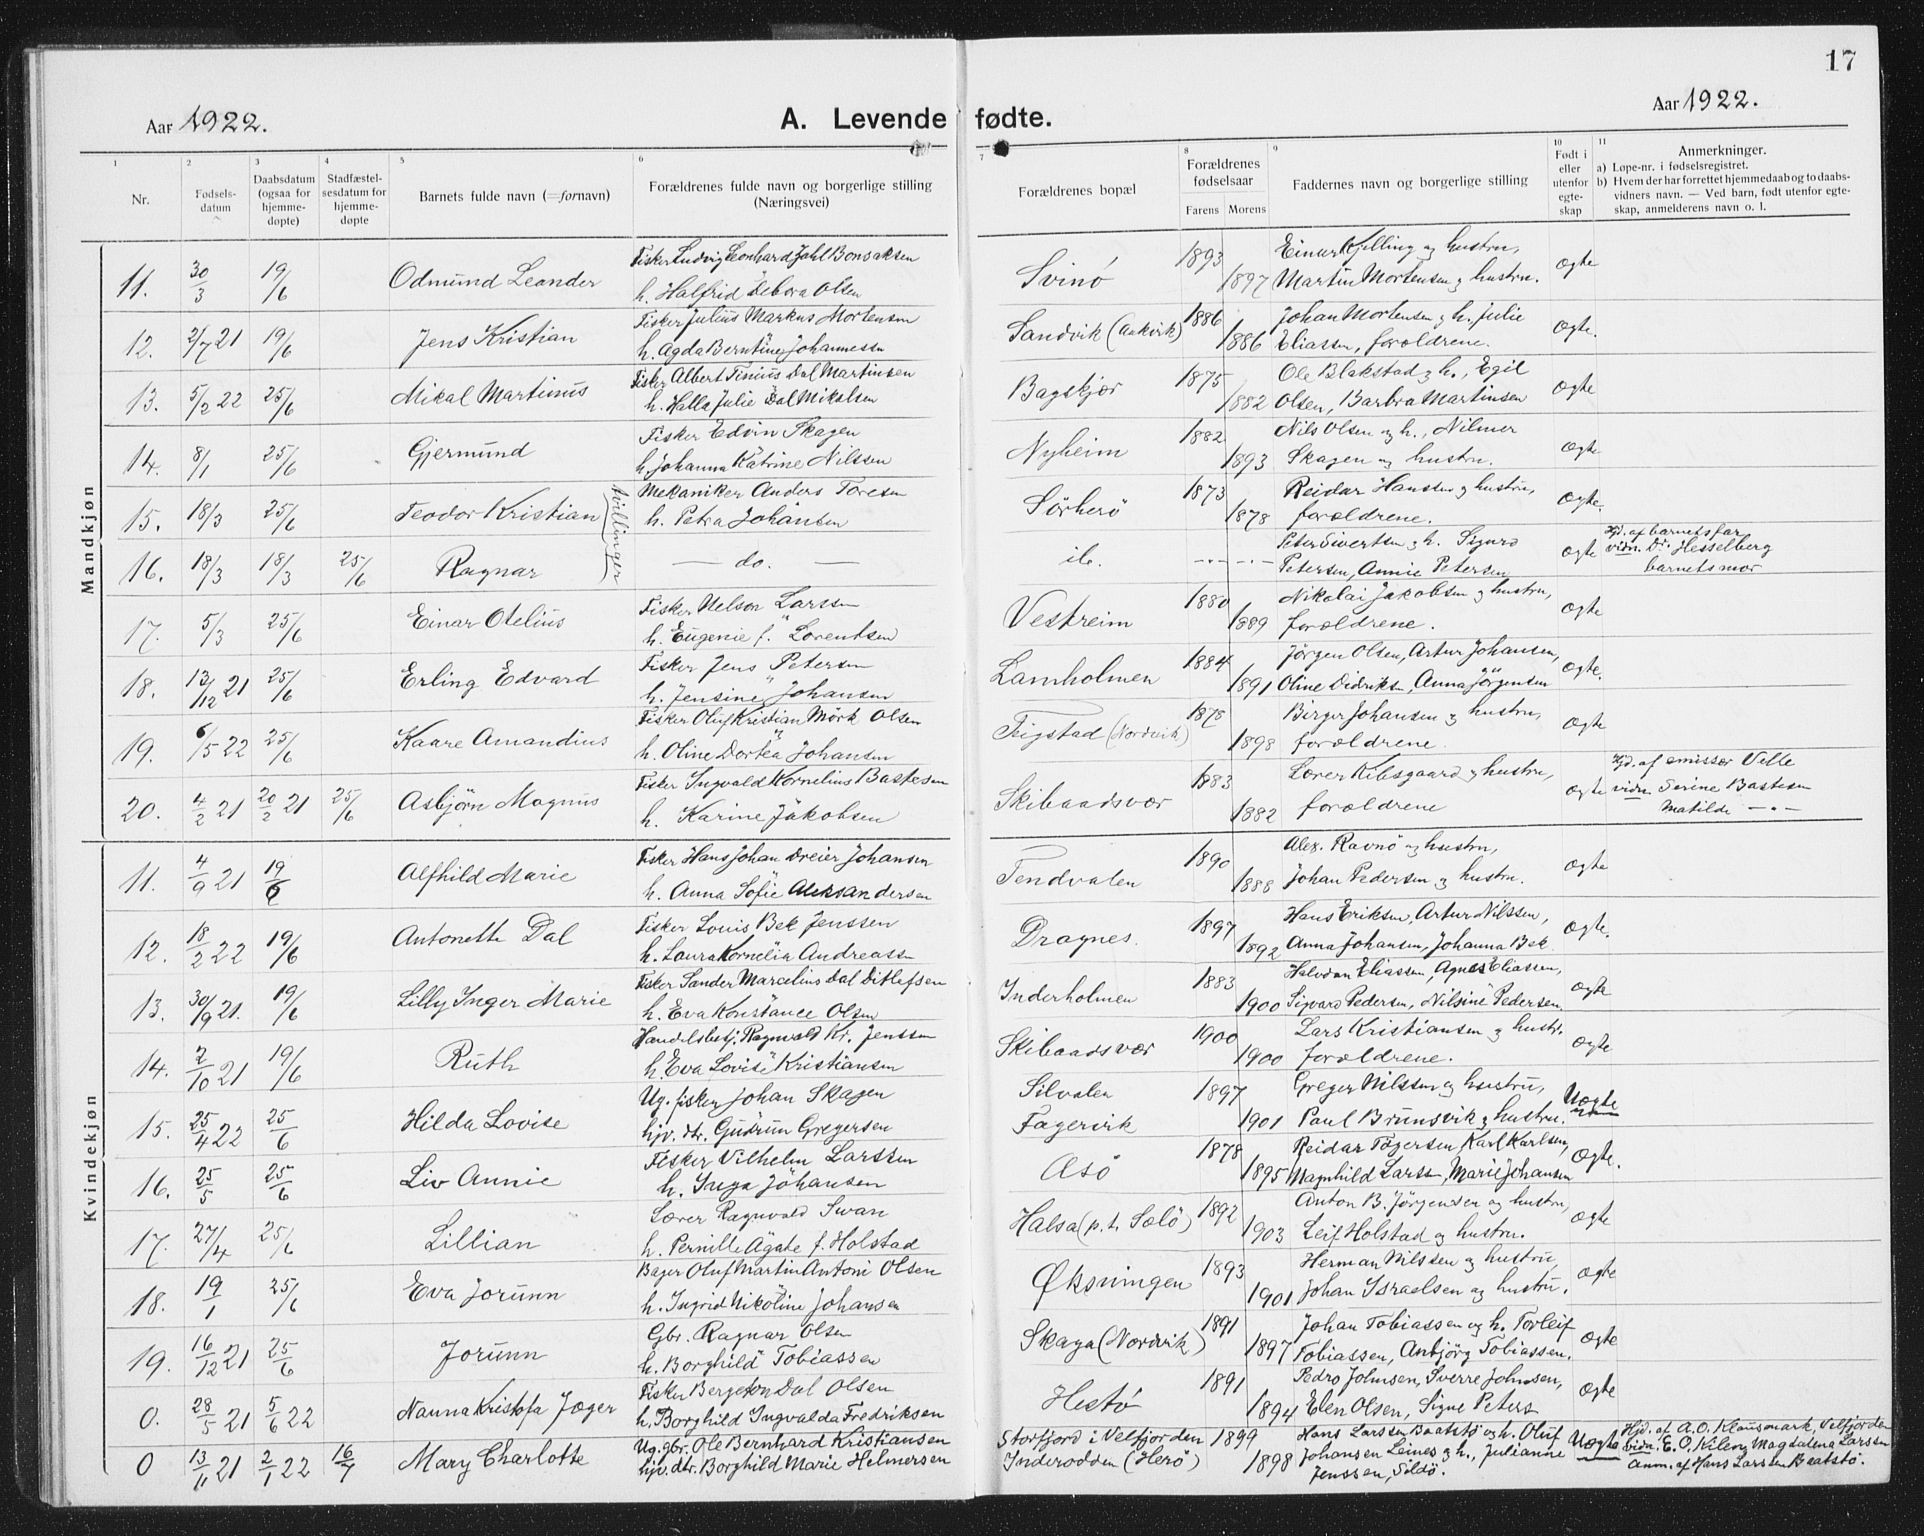 17
Aar 1922. A. Levende fødte. Aar 1922.
1 2 3 4 5 6 7 8 9 10 11
Nr. Fødselsdatum Daabsdatum (ogsaa for hjemmedøpte) Stadfæstelsesdatum for hjemmedøpte Barnets fulde navn (=fornavn) Forældrenes fulde navn og borgerlige stilling (Næringsvei) Forældrenes bopæl Forældrenes fødselsaar Farens Morens Faddernes navn og borgerlige stilling Født i eller utenfor egteskap Anmerkninger.
a) Løpe-nr. i fødselsregistret.
b) Hvem der har forrettet hjemmedaab og to daabsvidners navn. — Ved barn, født utenfor egteskap, anmelderens navn o. l.
Mandkjøn
11. 30/3 19/6 Odmund Leander Fisker Ludvig Leonhard Johl Bonsaksen Svinö 1893 Einar Kjelling og hustru, ægte
h. Halfrid Debora Olsen 1897 Martin Mortensen og hustru.
12. 2/7 21 19/6 Jens Kristian Fisker Julius Markus Mortensen Sandvik (Aakvik) 1886 Johan Mortensen og h. Julie ægte.
h. Agda Berntine Johannessen 1886 Eliassen, forældrene.
13. 5/2 22 25/6 Mikal Martinus Fisker Albert Tinius Dal Martinsen Bagskjær 1875 Ole Blakstad og h., Egil ægte
h. Halla Julie Dal Mikalsen 1882 Olsen, Barbra Martinsen
14. 8/1 25/6 Gjermund Fisker Edvin Skagen Nyheim 1882 Nils Olsen og h., Nilmer ægte
h. Johanna Katrine Nilssen 1893 Skagen og hustru.
15. 18/3 25/6 Teodor Kristian Tvillinger Mekaniker Anders Toresen Sörherö 1873 Reidar Hanssen og hustru, ægte.
h. Petra Johansen 1878 forældrene.
16. 18/3 18/3 25/6 Ragnar — do. — ib. --- --- Peter Sivertsen og h. Sigurd ægte Hjd. af barnets far
Petersen, Annie Petersen vidn. Dr. Hesselberg
barnets mor
17. 5/3 25/6 Einar Otelius Fisker Nelson Larssen Vestreim 1880 Nikolai Jakobsen og hustru, ægte
h. Eugenie f. Lorentsen 1889 forældrene.
18. 13/12 21 25/6 Erling Edvard Fisker Jens Petersen Lamholmen 1884 Jörgen Olsen, Artur Johansen, ægte.
h. Jensine Johansen 1891 Oline Didriksen, Anna Jörgensen
19. 6/5 22 25/6 Kaare Amandius Fisker Oluf Kristian Mörk Olsen Teigstad (Nordvik) 1878 Birger Johansen og hustru, ægte
h. Oline Dortea Johansen 1898 forældrene.
20. 4/2 21 20/2 21 25/6 Asbjörn Magnus Fisker Ingvald Kornelius Bastesen Skibaadsvær 1883 Lærer Kibsgaard og hustru, ægte Hjd. af emissær Velle
h. Karine Jakobsen 1882 forældrene vidn. Serine Bastesen
Matilde — " —
Kvindekjøn
11. 4/9 21 19/6 Alfhild Marie Fisker Hans Johan Dreier Johansen Tendvalen 1890 Alex. Ravnö og hustru, ægte
h. Anna Sofie Aleksandersen 1888 Johan Pedersen og hustru.
12. 18/2 22 19/6 Antonette Dal Fisker Louis Bek Jenssen Dragnes. 1897 Hans Eriksen, Artur Nilssen, ægte.
h. Laura Kornelia Andreassen 1892 Anna Johansen, Johanna Bek.
13. 30/9 21. 19/6 Lilly Inger Marie Fisker Sander Marcelius Dal Ditlefsen Inderholmen 1883 Halvdan Eliassen, Agnes Eliassen, ægte
h. Eva Konstance Olsen 1900 Sigvard Pedersen, Nilsine Pedersen
14. 2/10 21 19/6 Ruth Handelsbetj. Ragnvald Kr. Jenssen Skibaadsvær 1900 Lars Kristiansen og hustr. ægte
h. Eva Lovise Kristiansen 1900 forældrene.
15. 25/4 22 25/6 Hilda Lovise Ug. fisker Johan Skagen Silvalen 1897 Greger Nilssen og hustru, Uægte
hjv. dtr. Gudrun Gregersen Fagervik 1901 Paul Brunsvik og hustru.
16. 25/5 25/6 Liv Annie Fisker Vilhelm Larssen Asö 1878 Reidar Togersen, Karl Karlsen, ægte.
h. Inga Johansen 1895 Magnhild Larssen, Marie Johansen
17. 27/4 25/6 Lillian Lærer Ragnvald Svan Halsa (p.t. Sælö) 1892 Anton B. Jørgensen og hustru, ægte
h. Pernille Agate f. Holstad 1903 Leif Holstad og hustru.
18. 19/1 25/6 Eva Jorunn Bager Oluf Martin Antoni Olsen Øksningen 1893 Herman Nilssen og hustru, ægte
h. Ingrid Nikoline Johansen 1901 Johan Israelsen og hustru.
19. 16/12 21 25/6 Jorunn Gbr. Ragnar Olsen Skaga (Nordvik) 1891 Johan Tobiassen og h. Torleif ægte
h. Borghild Tobiassen 1897 Tobiassen, Anbjörg Tobiassen.
0. 28/5 21 5/6 22 Nanna Kristofa Jæger Fisker Bergeton Dal Olsen Hestö 1891 Pedro Johnsen, Sverre Johnsen, ægte
h. Borghild Ingvalda Fredriksen 1894 Elen Olsen, Signe Peters
0 13/11 21 2/1 22 16/7 Mary Charlotte Ug. gbr. Ole Bernhard Kristiansen Storfjord i Velfjorden 1899 Hans Larssen Baatstø og h. Oluf Uægte Hjd. af A. O. Klausmark, Velfjorden
hjv. dtr. Borghild Marie Helmersen Inderodden (Herö) 1898 Johansen Leines og h., Julianne vidn. E. O. Kilen, Magdalena Larssen
Jenssen, Sildö. Anm. af Hans Larssen Baatstø.